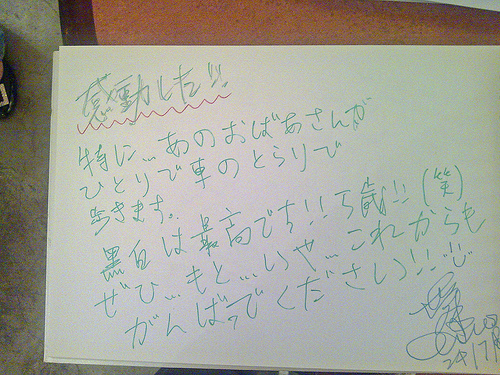 感動した!!
特に… あのおばあさんが
ひとりで車のとらりで
歩きます。
黒白は最高です!! 5歳!! (笑)
ぜひ… もと… いや… これからも
がんばってください!!
24/7/